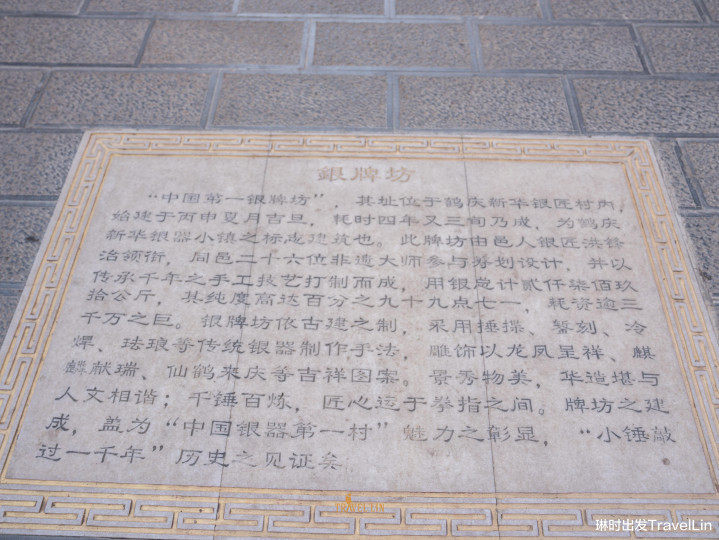 銀牌坊
“中国第一银牌坊”，其址位于鹤庆新华银匠村内，
始建于丙申夏月吉旦，耗时四年又三旬乃成，为鹤庆
新华银器小镇之标志建筑也。此牌坊由邑人银匠洪锋
治领衔，同邑二十六位非遗大师参与筹划设计，并以
传承千年之手工技艺打制而成，用银总计贰仟柒佰玖
拾公斤，其纯度高达百分之九十九点七一，耗资逾三
千万之巨。银牌坊依古建之制，采用捶揲、錾刻、冷
焊、珐琅等传统银器制作手法，雕饰以龙凤呈祥、麒
麟献瑞、仙鹤来庆等吉祥图案。景秀物美，华造堪与
人文相谐；千锤百炼，匠心运于拳指之间。牌坊之建
成，盖为“中国银器第一村”魅力之彰显，“小锤敲
过一千年”历史之见证矣
TRAVELLIN
琳时出发TravelLin